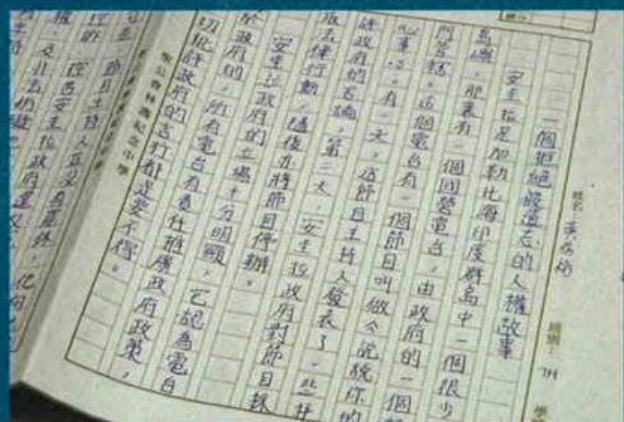 姓名 黃
班別： 7H 學
一個拒絕被遺忘的人權故事
安圭拉是加勒比海印度群島中一個很少
島嶼，那裏有一個國營電台，由政府的一個
門管轄。這個電台有一個節目叫做今說說你的
有一天，這節目主持人發表了一些抨
評政府的言論，第二天，安圭拉政府對節目採
取法律行動，隨後亦將節目停辦。
安圭拉政府的立場十分明顯，它認為電台
於政府的，所有電台有責任推廣政府政策，
切批評政府的言行都是要不得。
聖公會林護紀念中學
節目主持人並沒有罷休，
控告安圭拉政府違反